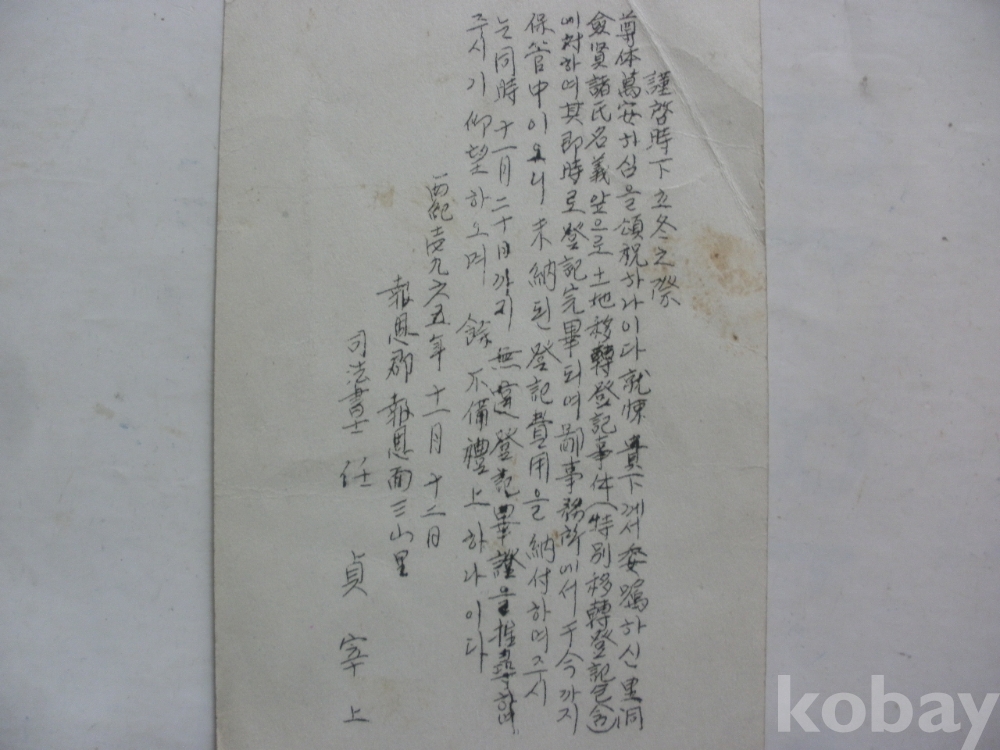 謹啓時下立冬之際
尊体萬安하심을 頌祝하나이다 就悚 貴下께서 委囑하신 里洞
僉賢諸氏名義앞으로 土地移轉登記事件(特別移轉登記包含)
에 對하여 其即時로 登記完畢되여 鄙事務所에서 于今까지
保管中이오니 未納된 登記費用을 納付하여주시
는 同時 十一月 二十日까지 無違 登記畢證을 推尋하여
주시기 仰望하오며 餘不備禮上하나이다
西紀壹九六五年 十一月 十二日
報恩郡 報恩面 三山里
司法書士 任 貞 宰 上
kobay